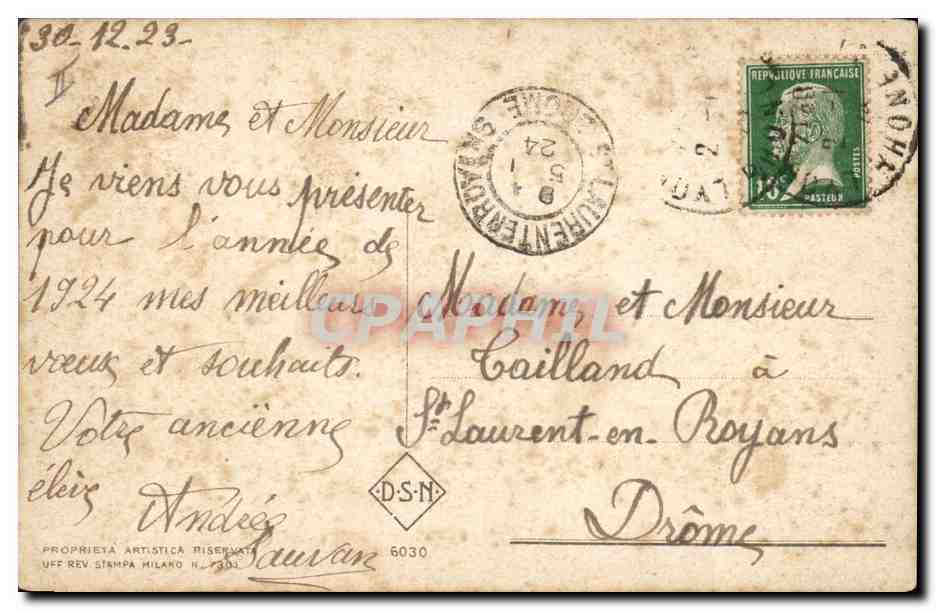 30-12.23-
II
Madame et Monsieur
Je viens vous présenter
pour l'année de
1924 mes meilleurs
vœux et souhaits.
Votre ancienne
élève
Andrée
Sauvan
PROPRIETA ARTISTICA RISERVATA
UFF. REV. STAMPA MILANO N. 7301
D·S·N·
6030
ST LAURENT EN ROYANS
DROME
5 - 1
24
REPUBLIQUE FRANÇAISE
POSTES
10c
PASTEUR
RHONE
Madame et Monsieur
Tailland à
St Laurent-en-Royans
Drôme
CPAPHIL